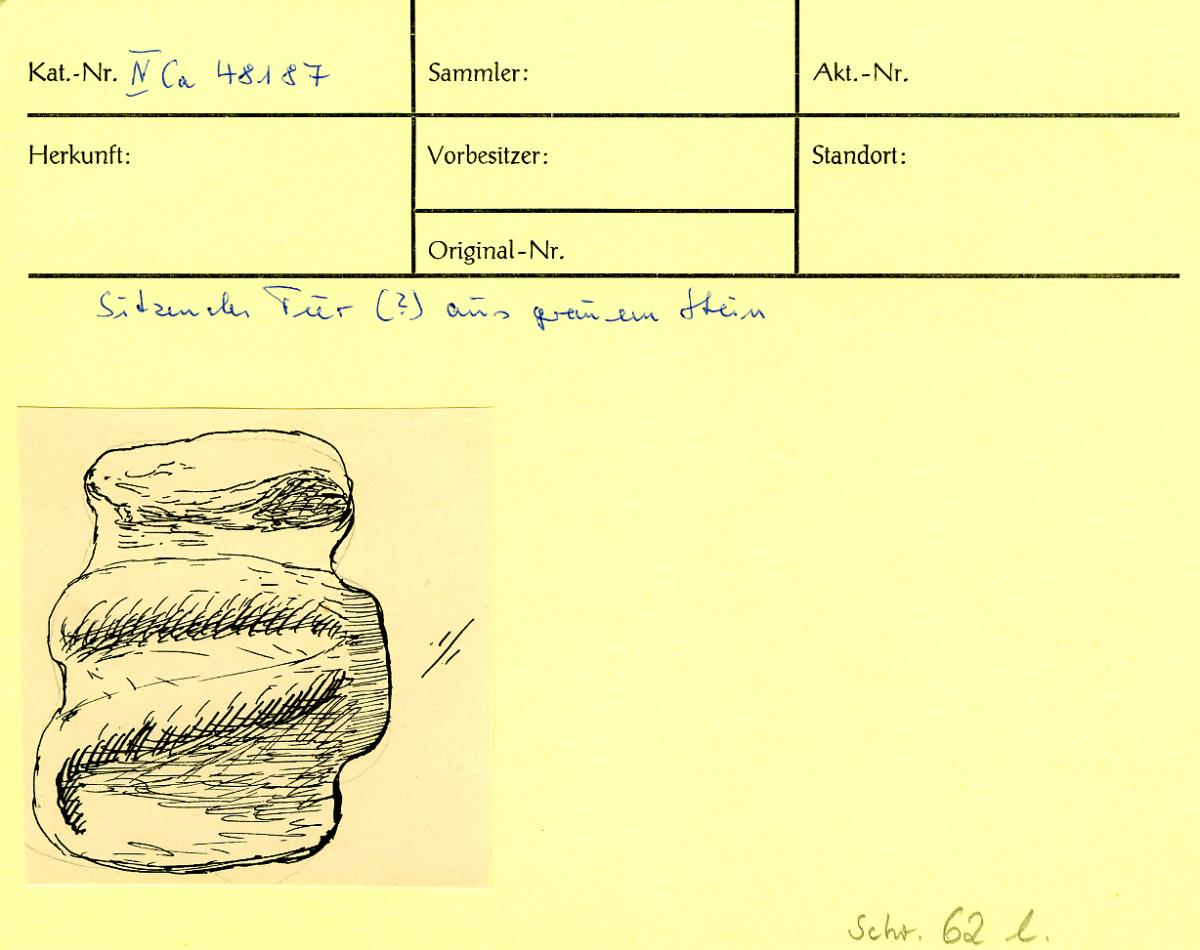 Kat.-Nr. IV Ca 48187
Sammler:
Akt.-Nr.
Herkunft:
Vorbesitzer:
Standort:
Original-Nr.
Sitzendes Tier (?) aus grauem Stein
1/1
Schr. 62 l.